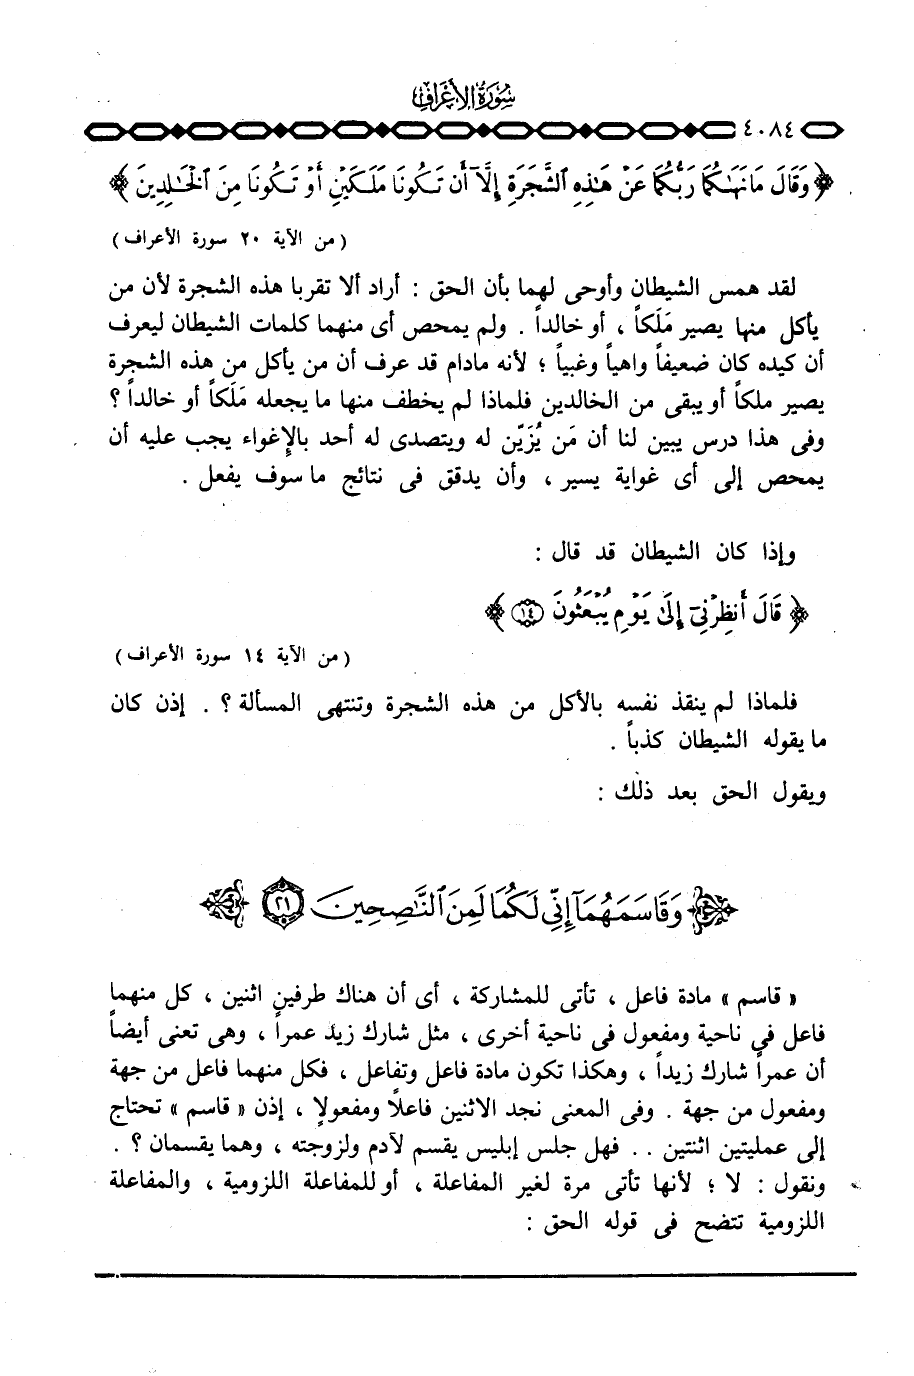 سُورَةُ الأَعْرَافِ
٤٠٨٤
﴿ وَقَالَ مَا نَهَىٰكُمَا رَبُّكُمَا عَنْ هَٰذِهِ ٱلشَّجَرَةِ إِلَّآ أَن تَكُونَا مَلَكَيْنِ أَوْ تَكُونَا مِنَ ٱلْخَٰلِدِينَ ﴾
( من الآية ٢٠ سورة الأعراف )
لقد همس الشيطان وأوحى لهما بأن الحق : أراد ألا تقربا هذه الشجرة لأن من
يأكل منها يصير مَلَكاً ، أو خالداً . ولم يمحص أى منهما كلمات الشيطان ليعرف
أن كيده كان ضعيفاً واهياً وغبياً ؛ لأنه مادام قد عرف أن من يأكل من هذه الشجرة
يصير ملكاً أو يبقى من الخالدين فلماذا لم يخطف منها ما يجعله مَلَكاً أو خالداً ؟
وفى هذا درس يبين لنا أن مَن يُزَيِّن له ويتصدى له أحد بالإغواء يجب عليه أن
يمحص إلى أى غواية يسير ، وأن يدقق فى نتائج ما سوف يفعل .
وإذا كان الشيطان قد قال :
﴿ قَالَ أَنظِرْنِىٓ إِلَىٰ يَوْمِ يُبْعَثُونَ ١٤ ﴾
( من الآية ١٤ سورة الأعراف )
فلماذا لم ينقذ نفسه بالأكل من هذه الشجرة وتنتهى المسألة ؟ . إذن كان
ما يقوله الشيطان كذباً .
ويقول الحق بعد ذلك :
وَقَاسَمَهُمَآ إِنِّى لَكُمَا لَمِنَ ٱلنَّٰصِحِينَ ٢١
« قاسم » مادة فاعل ، تأتى للمشاركة ، أى أن هناك طرفين اثنين ، كل منهما
فاعل فى ناحية ومفعول فى ناحية أخرى ، مثل شارك زيد عمراً ، وهى تعنى أيضاً
أن عمراً شارك زيداً ، وهكذا تكون مادة فاعل وتفاعل ، فكل منهما فاعل من جهة
ومفعول من جهة . وفى المعنى نجد الاثنين فاعلاً ومفعولاً ، إذن « قاسم » تحتاج
إلى عمليتين اثنتين .. فهل جلس إبليس يقسم لآدم ولزوجته ، وهما يقسمان ؟ .
ونقول : لا ؛ لأنها تأتى مرة لغير المفاعلة ، أو للمفاعلة اللزومية ، والمفاعلة
اللزومية تتضح فى قوله الحق :